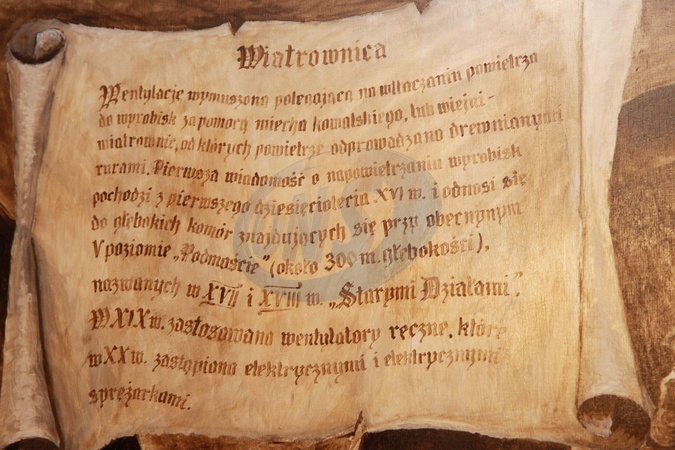 Wiatrownica
Wentylację wymuszoną polegającą na wtłaczaniu powietrza
do wyrobisk za pomocą miecha kowalskiego, lub wiejni-
wiatrownic, od których powietrze odprowadzano drewnianymi
rurami. Pierwsza wiadomość o napowietrzaniu wyrobisk
pochodzi z pierwszego dziesięciolecia XVI w. i odnosi się
do głębokich komór znajdujących się przy obecnynym
V poziomie „Podmoście" (około 300 m. głębokości),
nazwanych w XVII i XVIII w. „Starymi Działami".
W XIX w. zastosowano wentylatory ręczne, które
w XX w. zastąpiono elektrycznymi i elektrycznymi
sprężarkami.